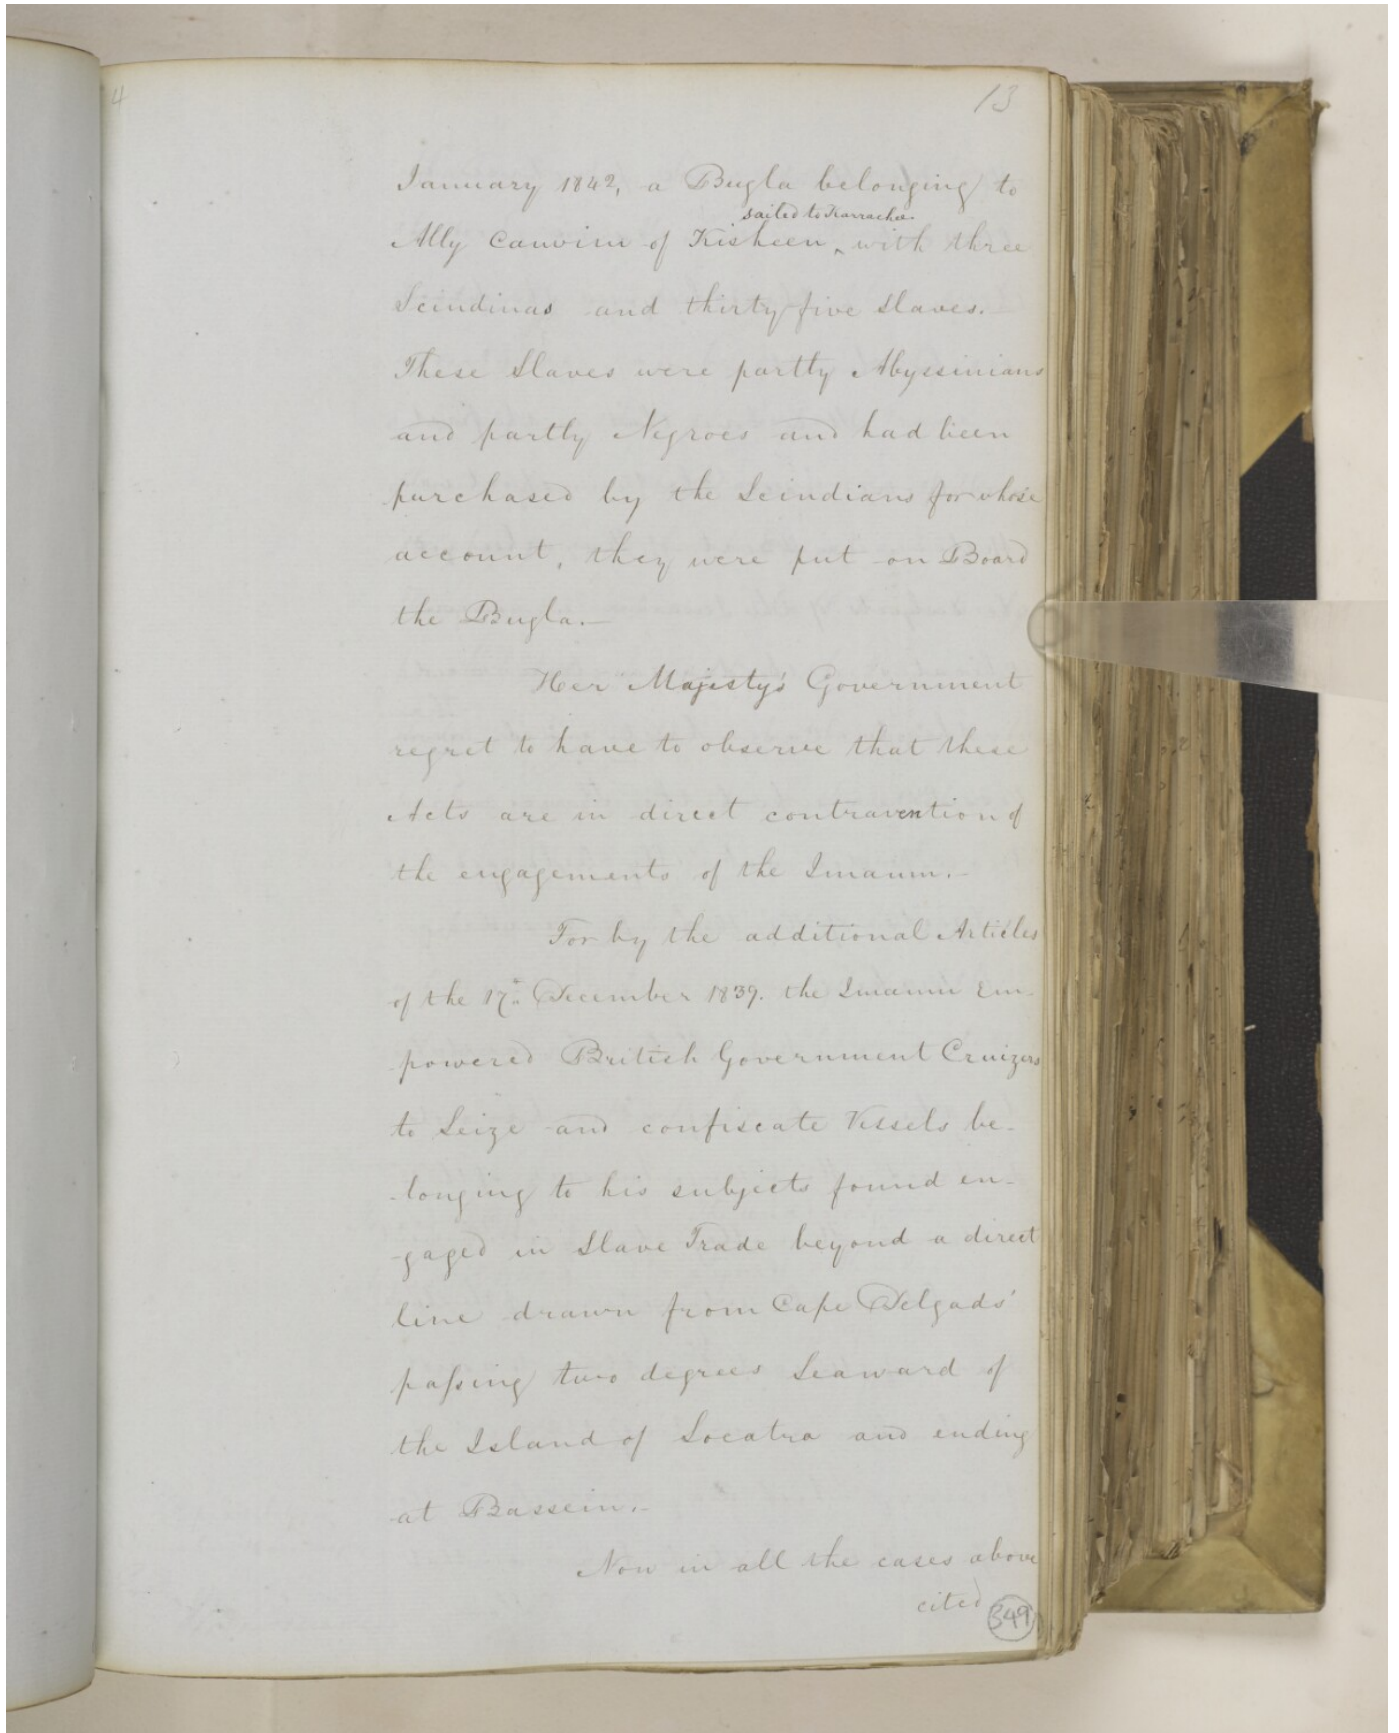 4
13
January 1842, a Bugla belonging to
sailed to Karrachee
Ally Canvim of Kisheen ‸ with three
Scindinas and thirty five Slaves.
These Slaves were partly Abyssinians
and partly Negroes and had been
purchased by the Scindians for whose
account, they were put on Board
the Bugla.—
Her Majesty's Government
regret to have to observe that these
Acts are in direct contravention of
the engagements of the Imaum.—
For by the additional Articles
of the 17th December 1839. the Imaum Em-
powered British Government Cruizers
to Seize and confiscate Vessels be-
-longing to his subjects found en-
-gaged in Slave Trade beyond a direct
line drawn from Cape Delgado
paſsing two degrees Seaward of
the Island of Socatra and ending
at Bassein.—
Now in all the cases above
cited
349